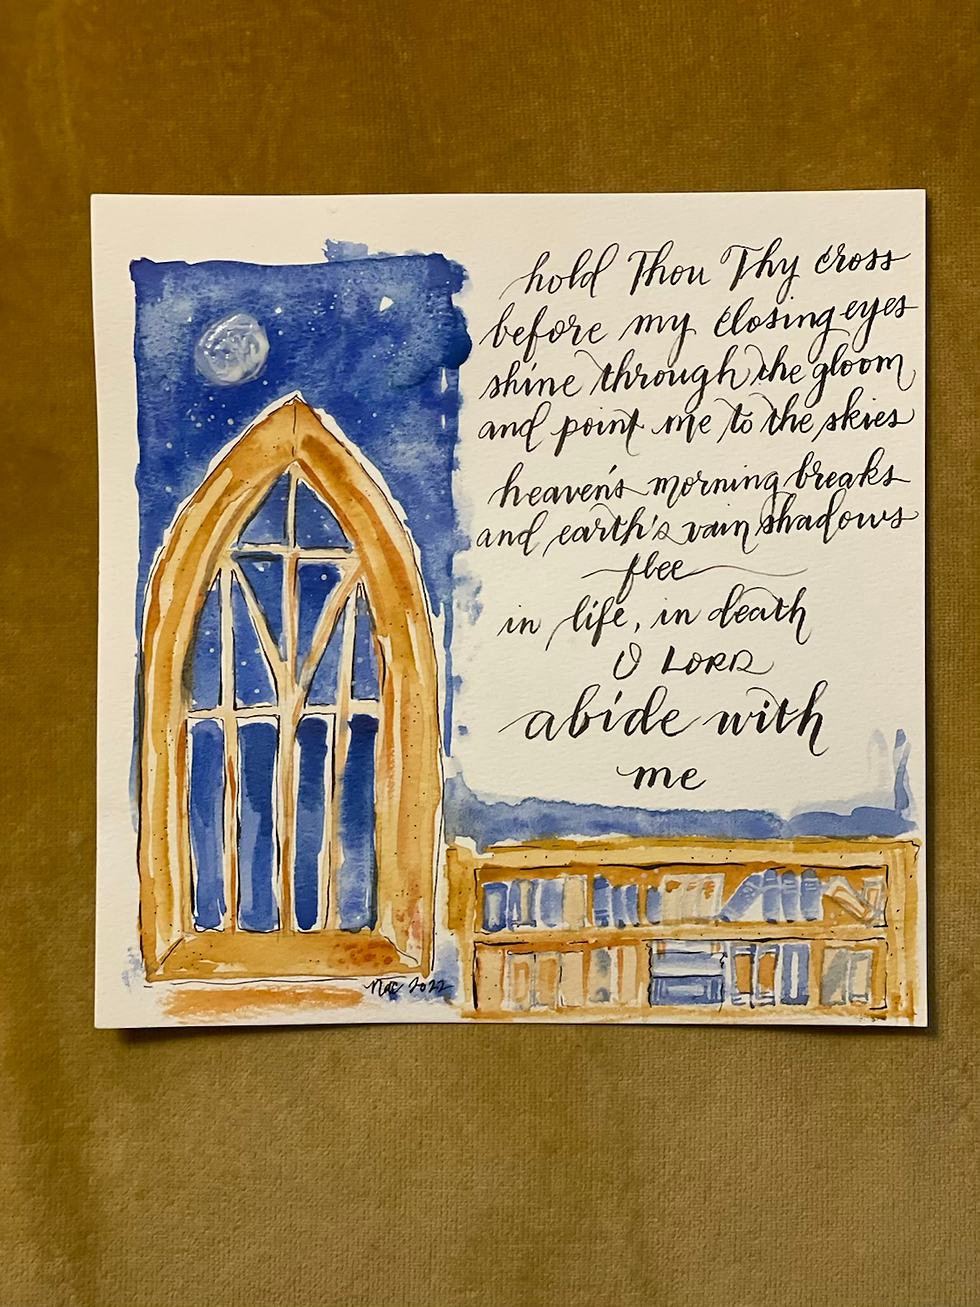 hold Thou Thy cross
before my closing eyes
shine through the gloom
and point me to the skies
heaven's morning breaks
and earth's vain shadows
flee
in life, in death
O LORD
abide with
me
2022